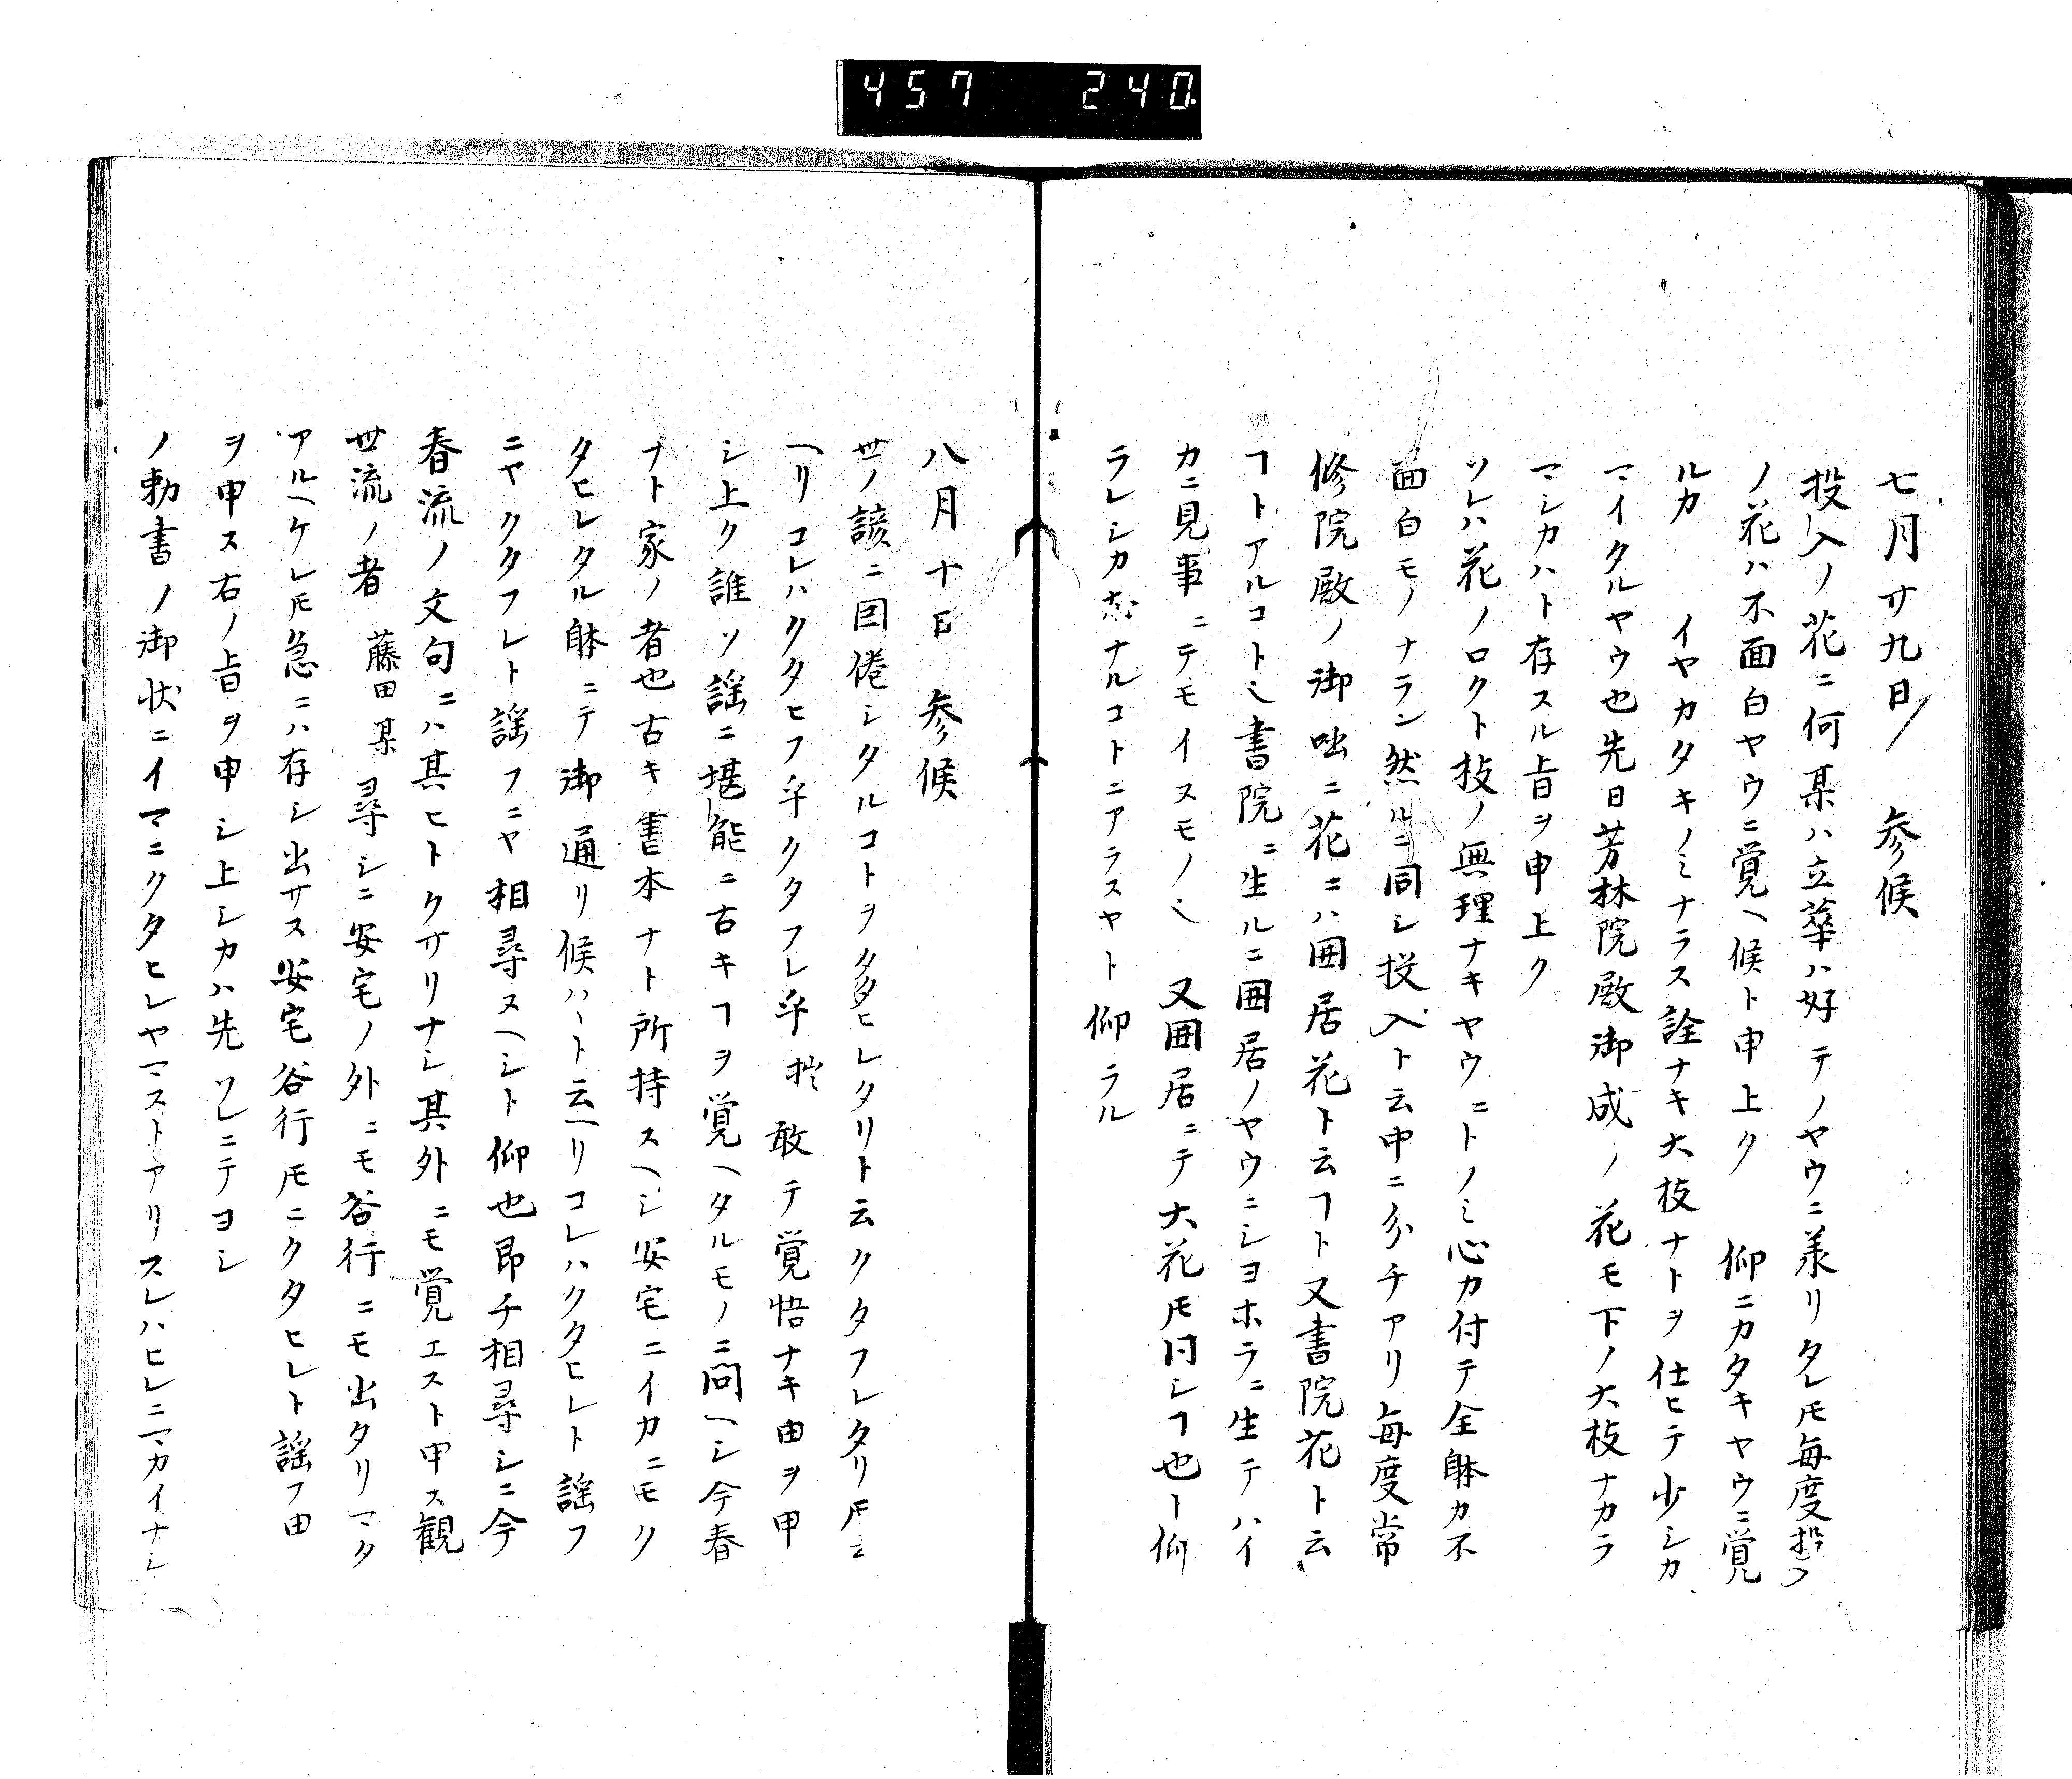 457 240
七月廿九日 参候
投入ノ花ニ何某ハ立華ハ好テノヤウニ美リタレ𪜈毎度投入
ノ花ハ不面白ヤウニ覚ヘ候ト申上ク 仰ニカタキヤウニ覚
ルカ イヤカタキノミナラス詮ナキ大枝ナトヲ仕ヒテ少シカ
マイタルヤウ也先日芳林院殿御成ノ花モ下ノ大枝ナカラ
マシカハト存スル旨ヲ申上ク
ソレハ花ノロクト枝ノ無理ナキヤウニトノミ心カ付テ全躰カ不
面白モノナラン然ルニ同シ投入ト云中ニ分チアリ毎度常
修院殿ノ御咄ニ花ニハ囲居花ト云ヿト又書院花ト云
ヿトアルコト也書院ニ生ルニ囲居ノヤウニシヨホラニ生テハイ
カニ見事ニテモイヌモノ也 又囲居ニテ大花𪜈同シヿ也ト仰
ラレシカ左ナルコトニアラスヤト仰ラル
八月十日 参候
世ノ諺ニ困倦シタルコトヲクタヒレタリト云クタフレタリ𪜈云
ヘリコレハクタヒフ乎クタフレ乎 敢テ覚悟ナキ由ヲ申
シ上ク誰ソ謡ニ堪能ニ古キヿヲ覚ヘタルモノニ問ヘシ今春
ナト家ノ者也古キ書本ナト所持スヘシ安宅ニイカニモク
タヒレタル躰ニテ御通リ候ハヽト云ヘリコレハクタヒレト謡フ
ニヤクタフレト謡フニヤ相尋ヌヘシト仰也即チ相尋シニ今
春流ノ文句ニハ其ヒトクサリナシ其外ニモ覚エスト申ス観
世流ノ者 藤田某 尋シニ安宅ノ外ニモ谷行ニモ出タリマタ
アルヘケレ𪜈急ニハ存シ出サス安宅谷行𪜈ニクタヒレト謡フ由
ヲ申ス右ノ旨ヲ申シ上シカハ先ソレニテヨシ
ノ勅書ノ御状ニイマニクタヒレヤマストアリスレハヒレニマカイナシ